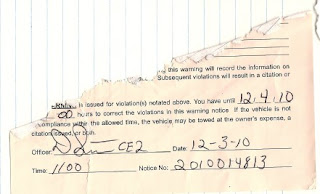 this warning will record the information on
Subsequent violations will result in a citation or
is issued for violation(s) notated above. You have until 12.4.10
00 hours to correct the violations in this warning notice. If the vehicle is not
compliance within the allowed time, the vehicle may be towed at the owner's expense, a
citation issued, or both.
Officer: CE2 Date: 12-3-10
Time: 1100 Notice No: 2010014813